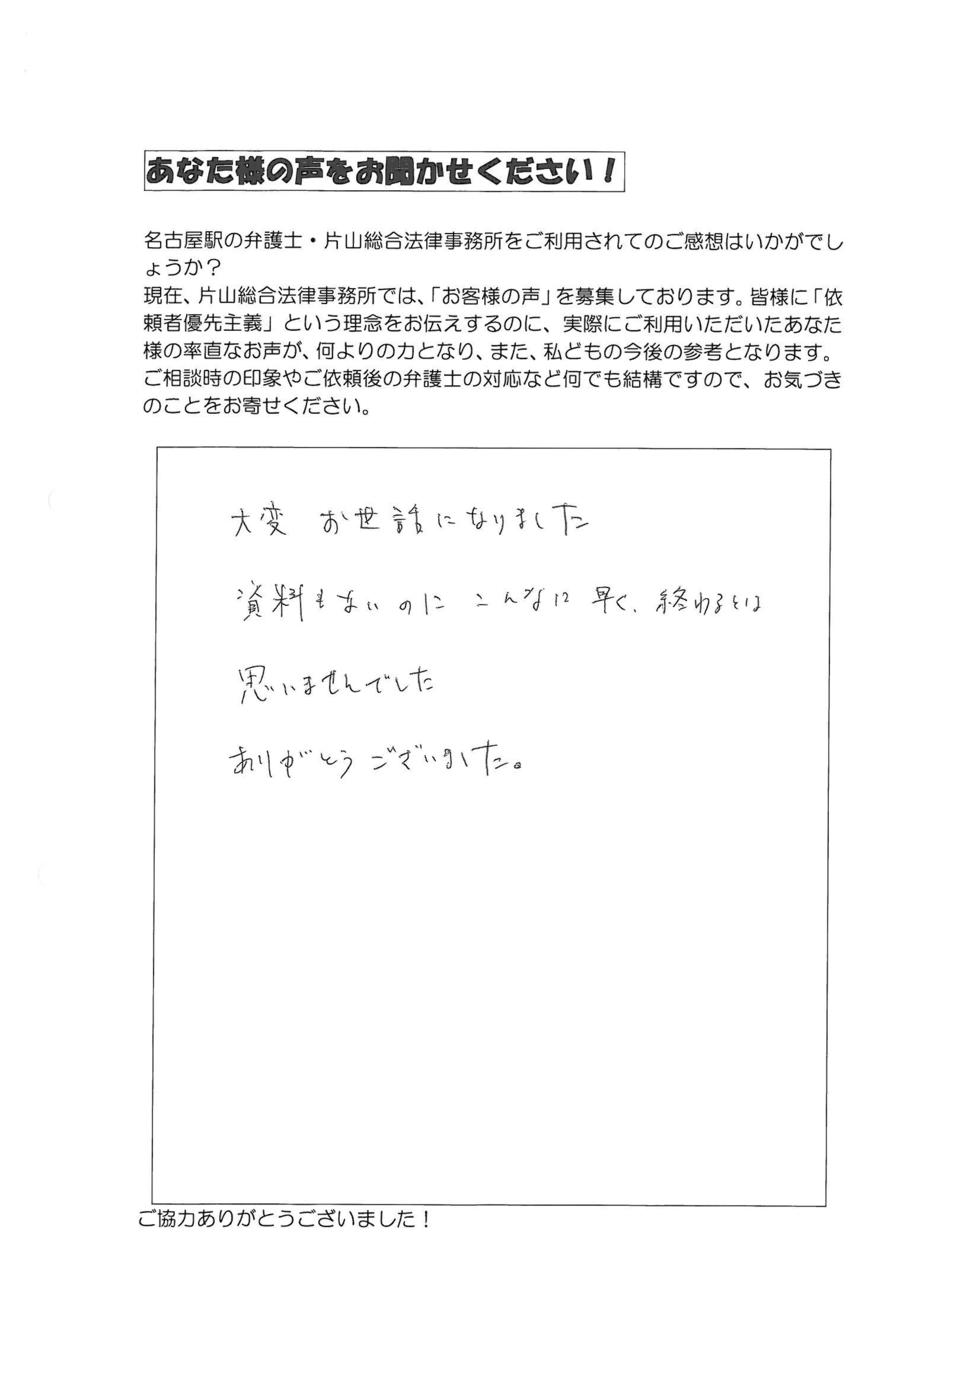 あなた様の声をお聞かせください！
名古屋駅の弁護士・片山総合法律事務所をご利用されてのご感想はいかがでし
ょうか？
現在、片山総合法律事務所では、「お客様の声」を募集しております。皆様に「依
頼者優先主義」という理念をお伝えするのに、実際にご利用いただいたあなた
様の率直なお声が、何よりの力となり、また、私どもの今後の参考となります。
ご相談時の印象やご依頼後の弁護士の対応など何でも結構ですので、お気づき
のことをお寄せください。
大変 お世話になりました
資料もないのに こんなに 早く、終わるとは
思いませんでした
ありがとう ございました。
ご協力ありがとうございました！